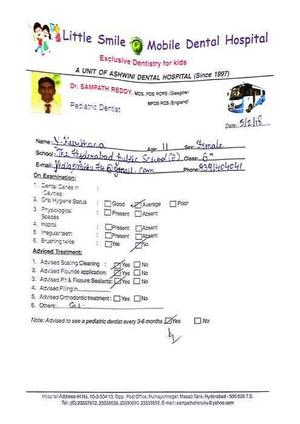 Little Smile Mobile Dental Hospital
Exclusive Dentistry for kids
A UNIT OF ASHWINI DENTAL HOSPITAL (Since 1997)
Dr. SAMPATH REDDY, MDS, FDS RCPS (Glasgow)
MFDS RCS (England)
Pediatric Dentist
Date: 5/2/18
Name: Age: 11 Sex: Female
School: The Hyderabad Public School Class: 6th
E-mail: @gmail.com Phone: 9391404041
On Examination:
1. Dental Caries in Cavities :
2. Oral Hygiene Status : Good Average Poor
3. Physiological Spaces : Present Absent
4. Habits : Present Absent
5. Irregular teeth : Present Absent
6. Brushing twice : Yes No
Adviced Treatment:
1. Advised Scaling/Cleaning : Yes No
2. Advised Flouride application: Yes No
3. Advised Pit & Fissure Sealants: Yes No
4. Advised Filling in
5. Advised Orthodontic treatment : Yes No
6. Others:
Note: Advised to see a pediatric dentist every 3-6 months Yes No
Hospital Address: H.No. 10-3-304/13, Opp. Post Office, Humayunnagar, Masab Tank, Hyderabad - 500 028 T.S.